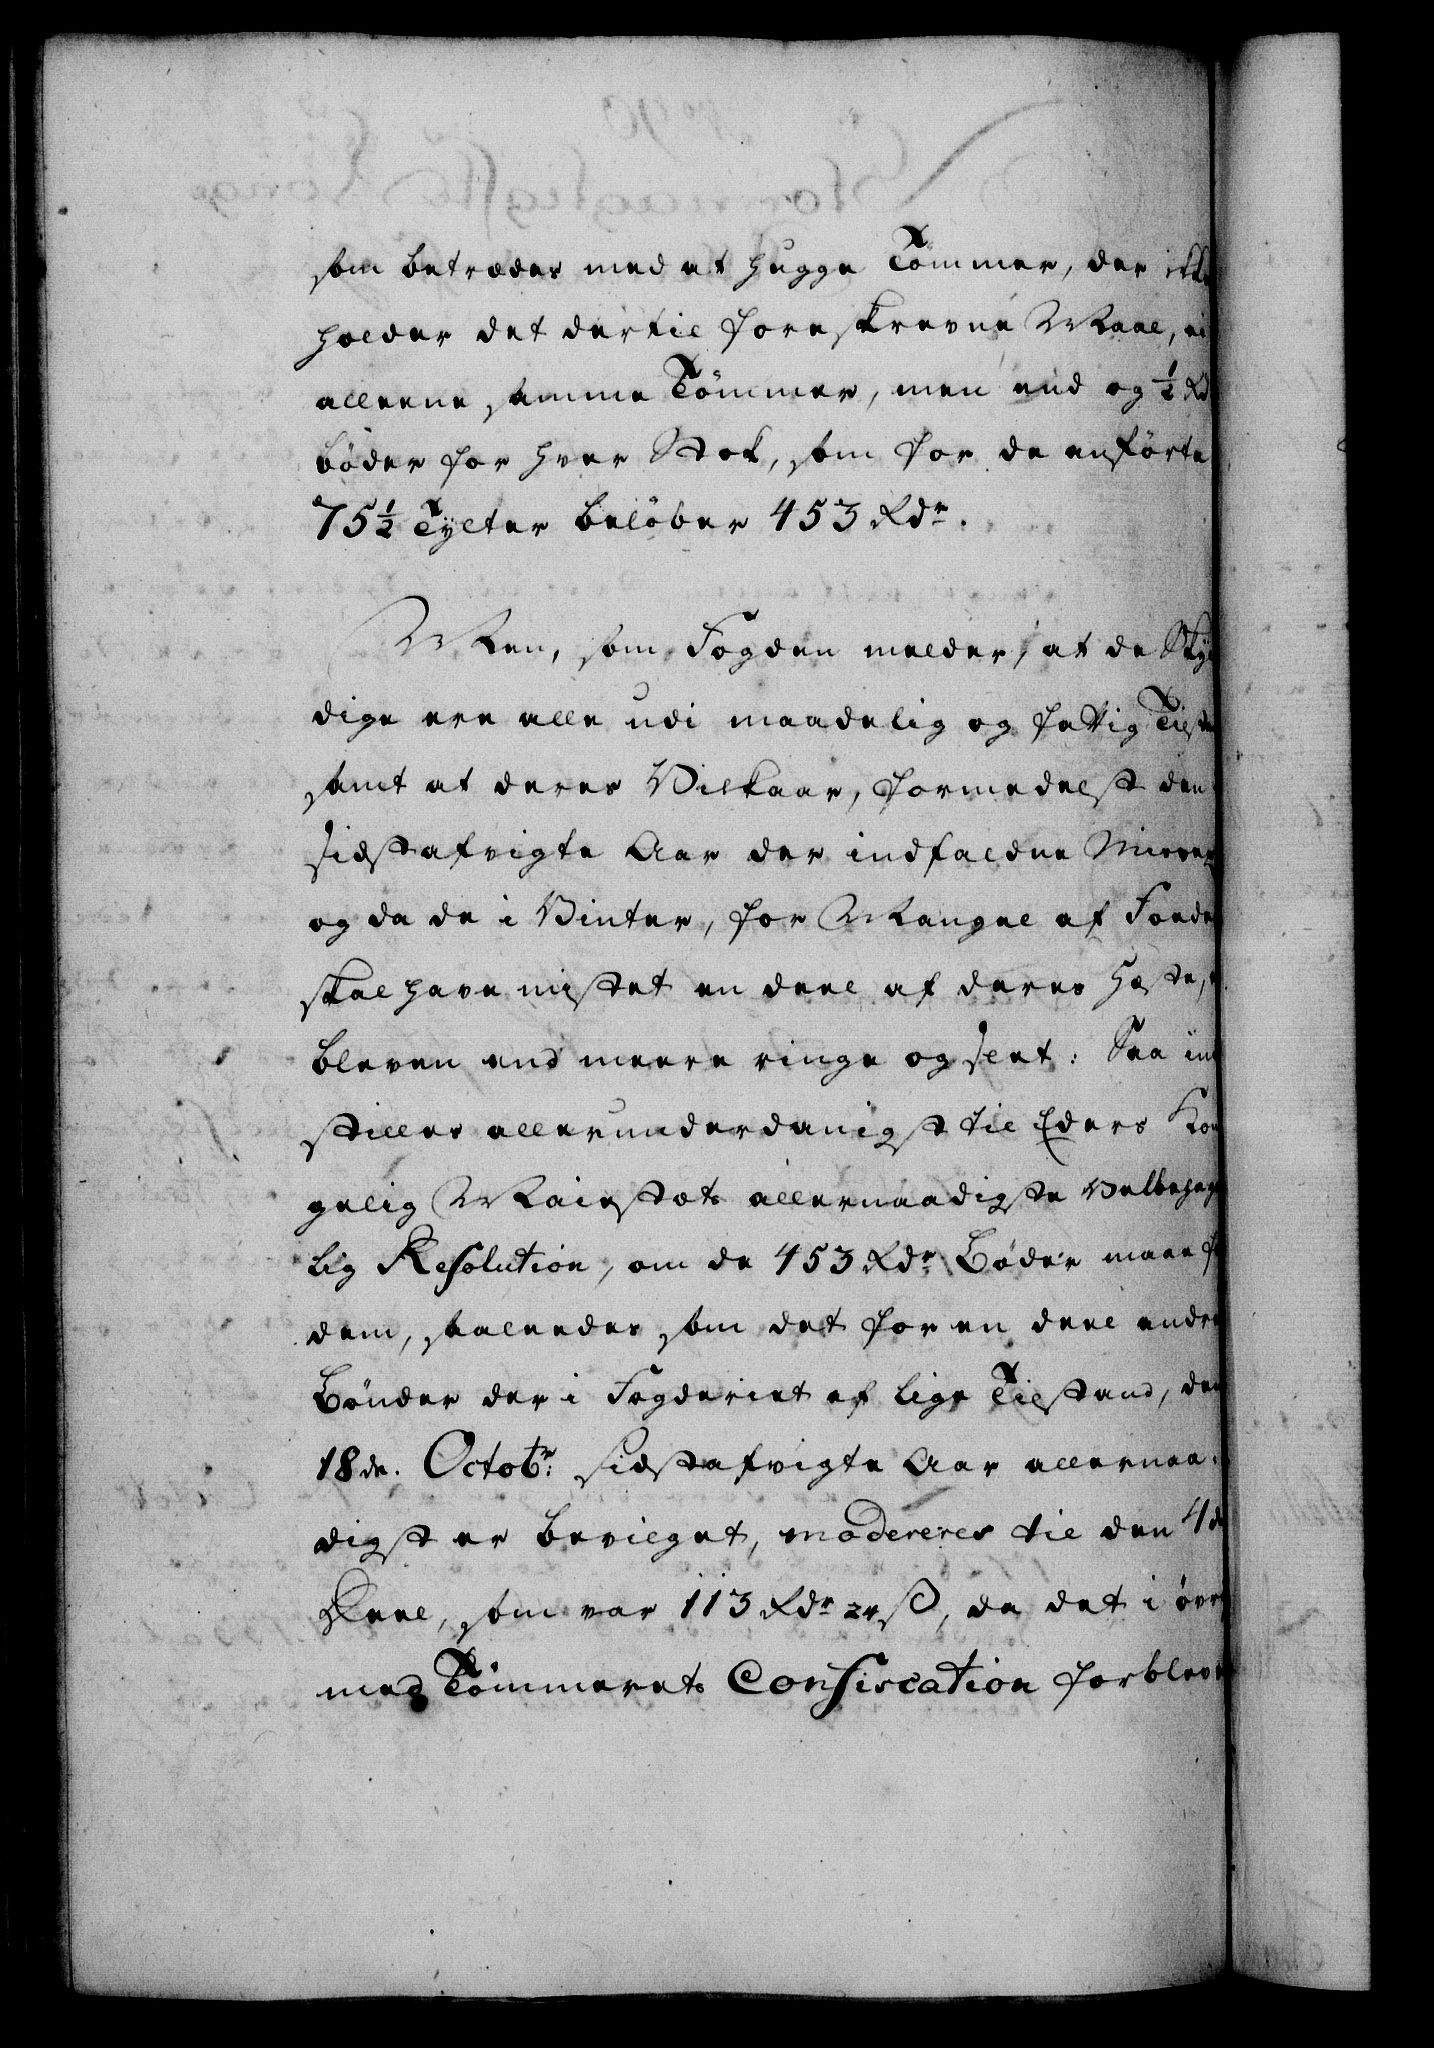 som betrædes med at hugge Tømmer, der ikke
holder det dertil foreskrevne Maal, ei
alleene samme Tømmer, men end og ½ Rd
bøder for hver Stok, som for de anførte
75½ Tylter beløber 453 Rdr.
Men, som Fogden melder, at de Skyl
dige ere alle udi maadelig og fattig Tilst
samt at deres Vilkaar, formedelst den
sidstafvigte Aar der indfaldne Misvæ
og da de i Vinter, for Mangel af Foede
skal have mistet en deel af deres Hæste,
bleven end meere ringe og slet: Saa ind
stilles allerunderdanigst til Eders Kon
gelig Maiestæts allernaadigste Velbehage
lig Resolution, om de 453 Rdr Bøder maae f
dem, saaledes som det for en deel andre
Bønder der i Fogderiet af lige Tilstand, den
18de. Octobr: sidstafvigte Aar allernaa-
digst er bevilget, modereres til den 4de
Deel, som var 113 Rdr 24 ß, da det i øvr
med Tømmerets Confiscation forblev